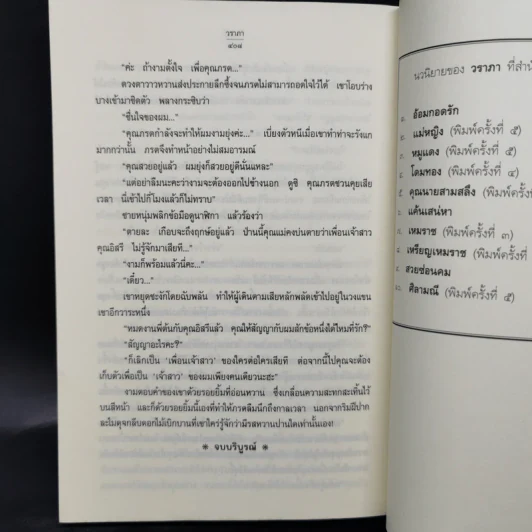 วราภา
๔๖๘
“ค่ะ ถ้างามตั้งใจ เพื่อคุณภรต...”
ดวงตาวาวหวานส่งประกายลึกซึ้งจนภรตไม่สามารถอดใจไว้ได้ เขาโอบร่าง
บางเข้ามาชิดตัว พลางกระซิบว่า
“ชื่นใจของผม...”
“คุณภรตกำลังจะทำให้ผมงามยุ่งค่ะ...” เบี่ยงตัวหนีเมื่อเขาทำท่าจะรังแก
มากกว่านั้น ภรตจึงทำหน้าอย่างไม่สมอารมณ์
“คุณสวยอยู่แล้ว ผมยุ่งก็สวยอยู่ดีนั่นแหละ”
“แต่อย่าลืมนะคะว่างามจะต้องออกไปข้างนอก ดูซิ คุณภรตชวนคุยเสีย
เวลา นี่เข้าไปกี่โมงแล้วก็ไม่ทราบ”
ชายหนุ่มพลิกข้อมือดูนาฬิกา แล้วร้องว่า
“ตายละ เกือบจะถึงฤกษ์อยู่แล้ว ป่านนี้คุณแม่คงบ่นตายว่าเพื่อนเจ้าสาว
คุณอิสรี ไม่รู้จักมาเสียที...”
“งามก็พร้อมแล้วนี่คะ...”
“เดี๋ยว...”
เขาหยุดชะงักโดยฉับพลัน ทำให้ผู้เดินตามเสียหลักพลัดเข้าไปอยู่ในวงแขน
เขาอีกวาระหนึ่ง
“หมดงานพี่ต้นกับคุณอิสรีแล้ว คุณให้สัญญากับผมสักข้อหนึ่งได้ไหมที่รัก?”
“สัญญาอะไรคะ?”
“ก็เลิกเป็น ‘เพื่อนเจ้าสาว’ ของใครต่อใครเสียที ต่อจากนี้ไปคุณจะต้อง
เก็บตัวเพื่อเป็น ‘เจ้าสาว’ ของผมเพียงคนเดียวนะฮะ”
งามตอบคำของเขาด้วยรอยยิ้มที่อ่อนหวาน ซึ่งเกลื่อนความสะทกสะเทิ้นไว้
บนสีหน้า และก็ด้วยรอยยิ้มนี้เองที่ทำให้ภรตลืมนึกถึงกาลเวลา นอกจากริมฝีปาก
ละไมดุจกลีบดอกไม้เบิกบานที่เขาใคร่รู้จักว่ามีรสหวานปานใดเท่านั้นเอง!
จบบริบูรณ์
นวนิยายของ วราภา ที่สำนั
๑. อ้อมกอดรัก
๒. แม่หญิง (พิมพ์ครั้งที่ ๕)
๓. หมูแดง (พิมพ์ครั้งที่ ๕)
๔. โดมทอง (พิมพ์ครั้งที่ ๔)
๕. คุณนายสามสลึง (พิมพ์ครั้งที่
๖. แค้นเสน่หา
๗. เหมราช (พิมพ์ครั้งที่ ๓)
๘. เหรียญเหมราช (พิมพ์ครั้งที่
๙. สวยซ่อนคม
๑๐. ศิลามณี (พิมพ์ครั้งที่ ๕)